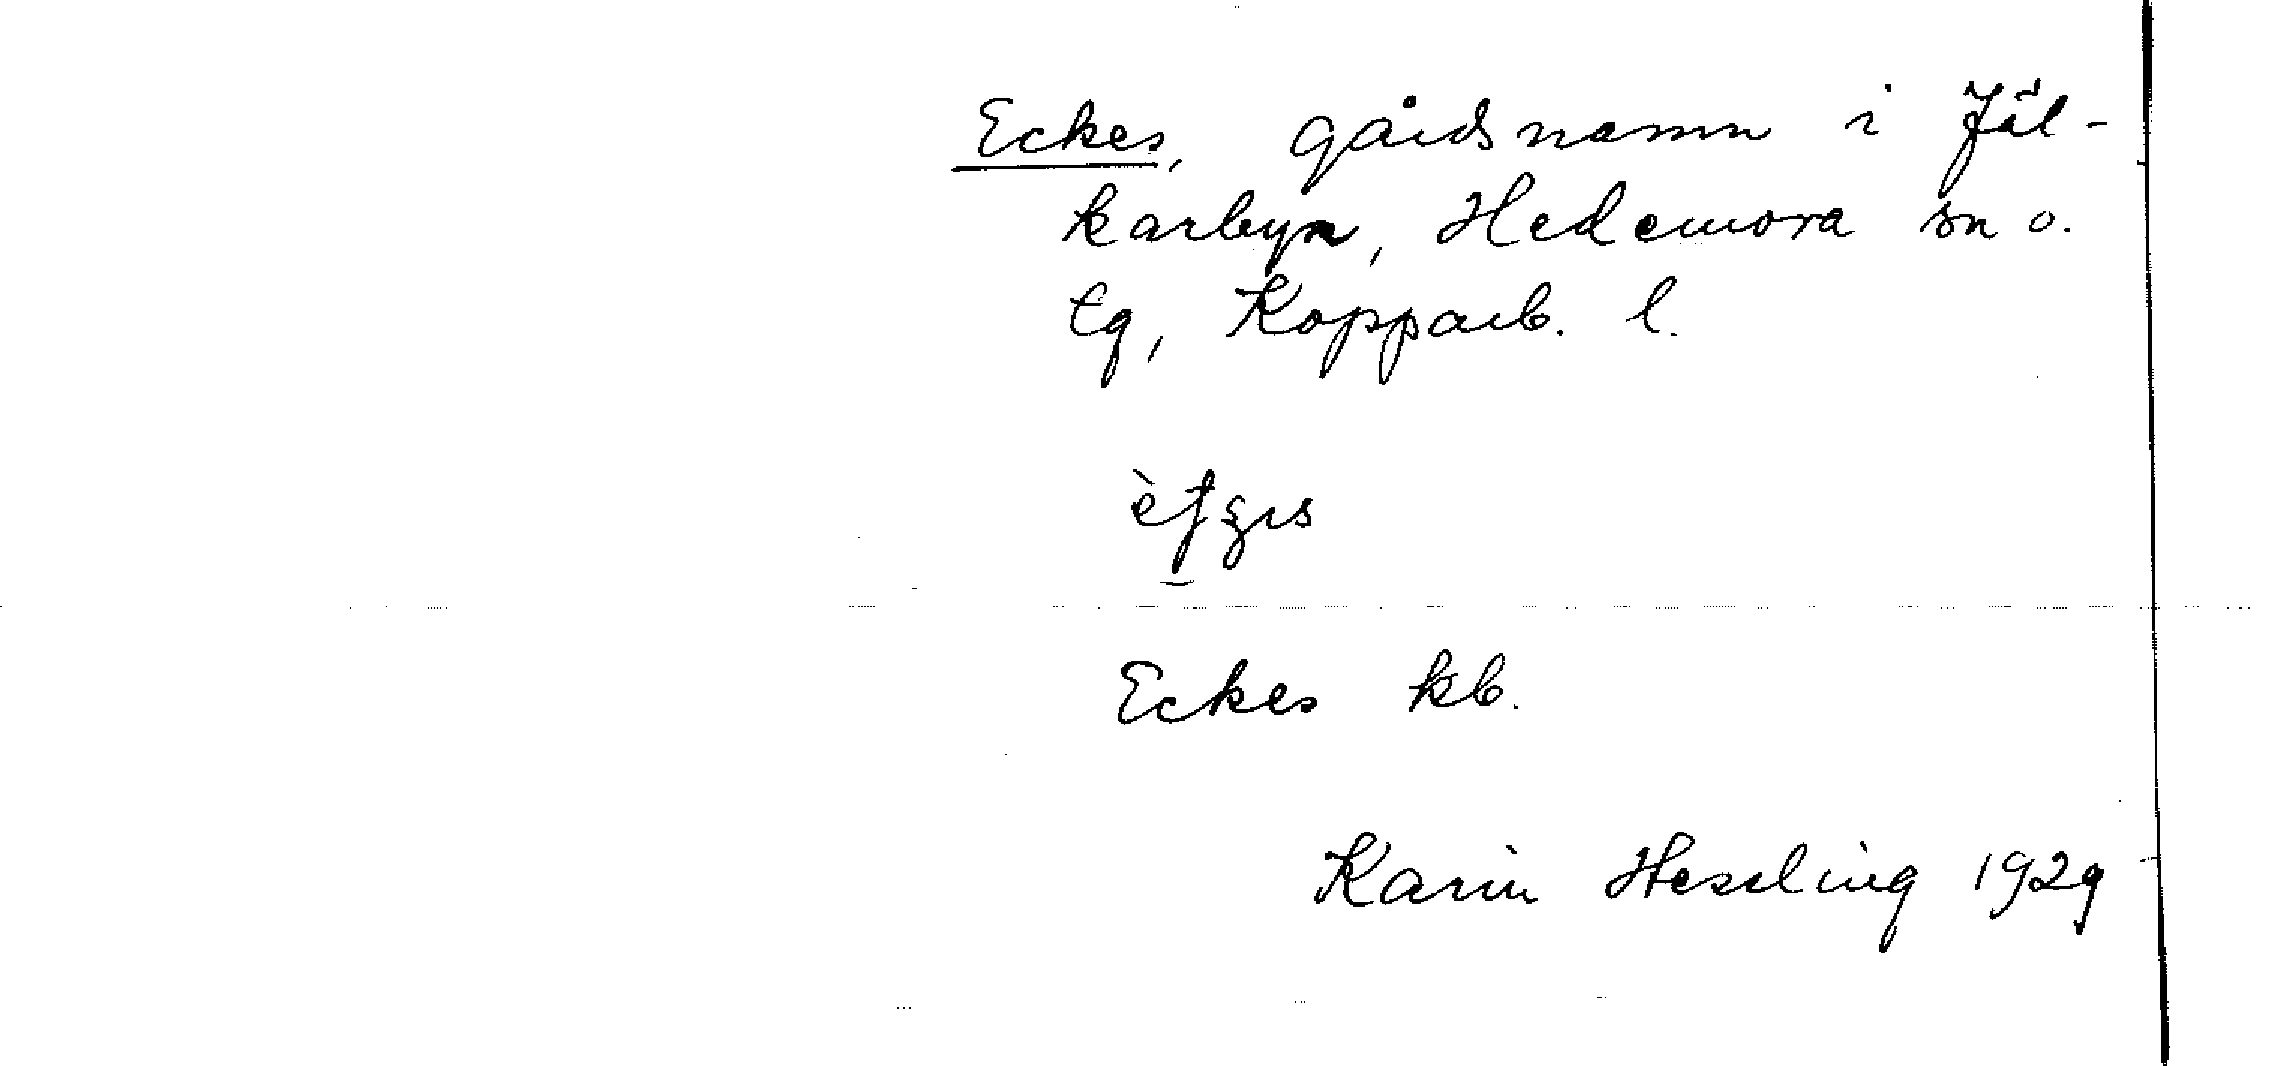 Eckes, gårdsnamn i Jäl-
karbyn, Hedemora sn o.
tg, Kopparb. l.
Eckes kb.
Karin Hessling 1929